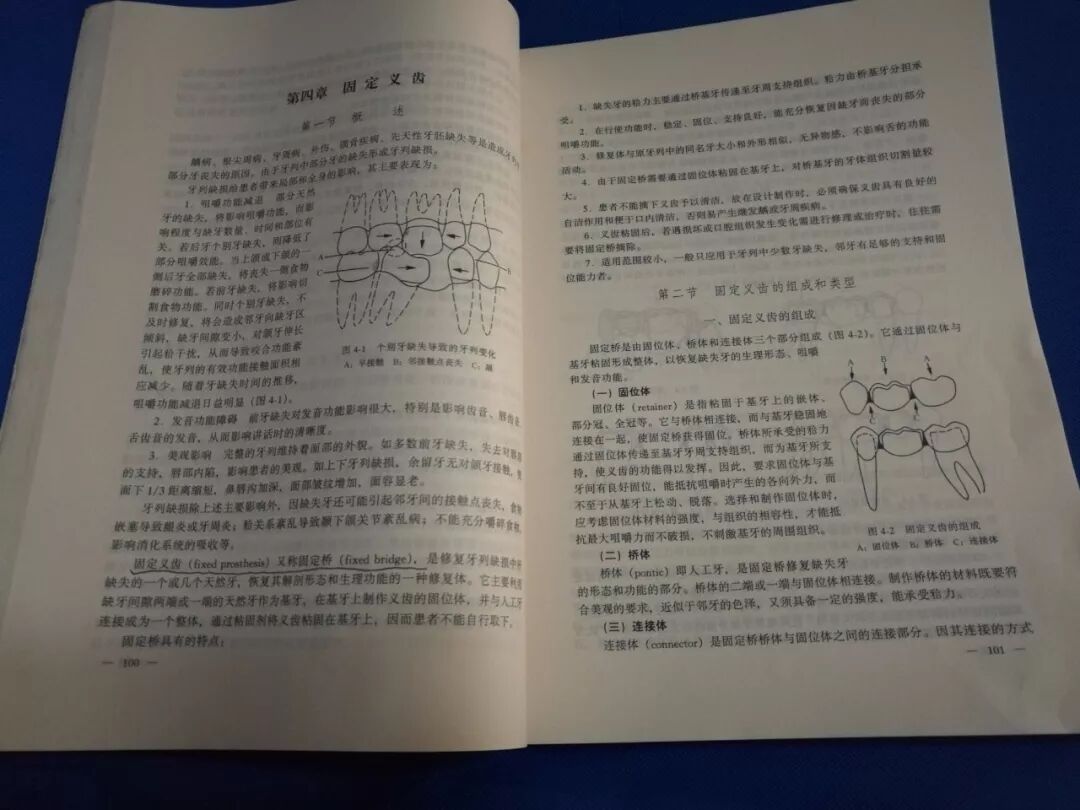 第四章 固定义齿
第一节 概述
龋病、根尖周病、牙周病、外伤、颌骨疾病、先天性牙胚缺失等是造成牙列中
部分牙丧失的原因。由于牙列中部分牙的缺失形成牙列缺损。
牙列缺损给患者带来局部和全身的影响，其主要表现为：
1．咀嚼功能减退 部分天然
牙的缺失，将影响咀嚼功能，而影
响程度与缺牙数量、时间和部位有
关。若后牙个别牙缺失，则降低了
部分咀嚼效能。当上颌或下颌的一
侧后牙全部缺失，将丧失一侧食物
磨碎功能。若前牙缺失，将影响切
割食物功能。同时个别牙缺失，不
及时修复，将会造成邻牙向缺牙区
倾斜，缺牙间隙变小，对颌牙伸长
引起𬌗干扰，从而导致咬合功能紊
乱，使牙列的有效功能接触面积相
应减少。随着牙缺失时间的推移，
咀嚼功能减退日益明显（图4-1）。
A
C
B
图 4-1 个别牙缺失导致的牙列变化
A：早接触 B：邻接触点丧失 C：龋
2．发音功能障碍 前牙缺失对发音功能影响很大，特别是影响齿音、唇齿音、
舌齿音的发音，从而影响讲话时的清晰度。
3．美观影响 完整的牙列维持着面部的外貌。如多数前牙缺失，失去对唇部
的支持，唇部内陷，影响患者的美观。如上下牙列缺损，余留牙无对颌牙接触，使
面下 1/3 距离缩短，鼻唇沟加深，面部皱纹增加，面容显老。
牙列缺损除上述主要影响外，因缺失牙还可能引起邻牙间的接触点丧失，食物
嵌塞导致龈炎或牙周炎；𬌗关系紊乱导致颞下颌关节紊乱病；不能充分嚼碎食物，
影响消化系统的吸收等。
固定义齿（fixed prosthesis）又称固定桥（fixed bridge），是修复牙列缺损中
缺失的一个或几个天然牙，恢复其解剖形态和生理功能的一种修复体。它主要利用
缺牙间隙两端或一端的天然牙作为基牙，在基牙上制作义齿的固位体，并与人工牙
连接成为一个整体，通过粘固剂将义齿粘固在基牙上，因而患者不能自行取下。
固定桥具有的特点：
— 100 —
1．缺失牙的𬌗力主要通过桥基牙传递至牙周支持组织。𬌗力由桥基牙分担承
受。
2．在行使功能时，稳定、固位、支持良好，能充分恢复因缺牙而丧失的部分
咀嚼功能。
3．修复体与原牙列中的同名牙大小和外形相似，无异物感，不影响舌的功能
活动。
4．由于固定桥需要通过固位体粘固在基牙上，对桥基牙的牙体组织切割量较
大。
5．患者不能摘下义齿予以清洁，故在设计制作时，必须确保义齿具有良好的
自洁作用和便于口内清洁，否则易产生继发龋或牙周疾病。
6．义齿粘固后，若遇损坏或口腔组织发生变化需进行修理或治疗时，往往需
要将固定桥摘除。
7．适用范围较小，一般只应用于牙列中少数牙缺失，邻牙有足够的支持和固
位能力者。
第二节 固定义齿的组成和类型
一、固定义齿的组成
固定桥是由固位体、桥体和连接体三个部分组成（图 4-2）。它通过固位体与
基牙粘固形成整体，以恢复缺失牙的生理形态、咀嚼
和发音功能。
（一）固位体
固位体（retainer）是指粘固于基牙上的嵌体、
部分冠、全冠等。它与桥体相连接，而与基牙稳固地
连接在一起，使固定桥获得固位。桥体所承受的𬌗力
通过固位体传递至基牙牙周支持组织，而为基牙所支
持，使义齿的功能得以发挥。因此，要求固位体与基
牙间有良好固位，能抵抗咀嚼时产生的各向外力，而
不至于从基牙上松动、脱落。选择和制作固位体时，
应考虑固位体材料的强度，与组织的相容性，才能抵
抗最大咀嚼力而不破损，不刺激基牙的周围组织。
A
B
A
C
C
图 4-2 固定义齿的组成
A：固位体 B：桥体 C：连接体
（二）桥体
桥体（pontic）即人工牙，是固定桥修复缺失牙
的形态和功能的部分。桥体的二端或一端与固位体相连接。制作桥体的材料既要符
合美观的要求，近似于邻牙的色泽，又须具备一定的强度，能承受𬌗力。
（三）连接体
连接体（connector）是固定桥桥体与固位体之间的连接部分。因其连接的方式
— 101 —